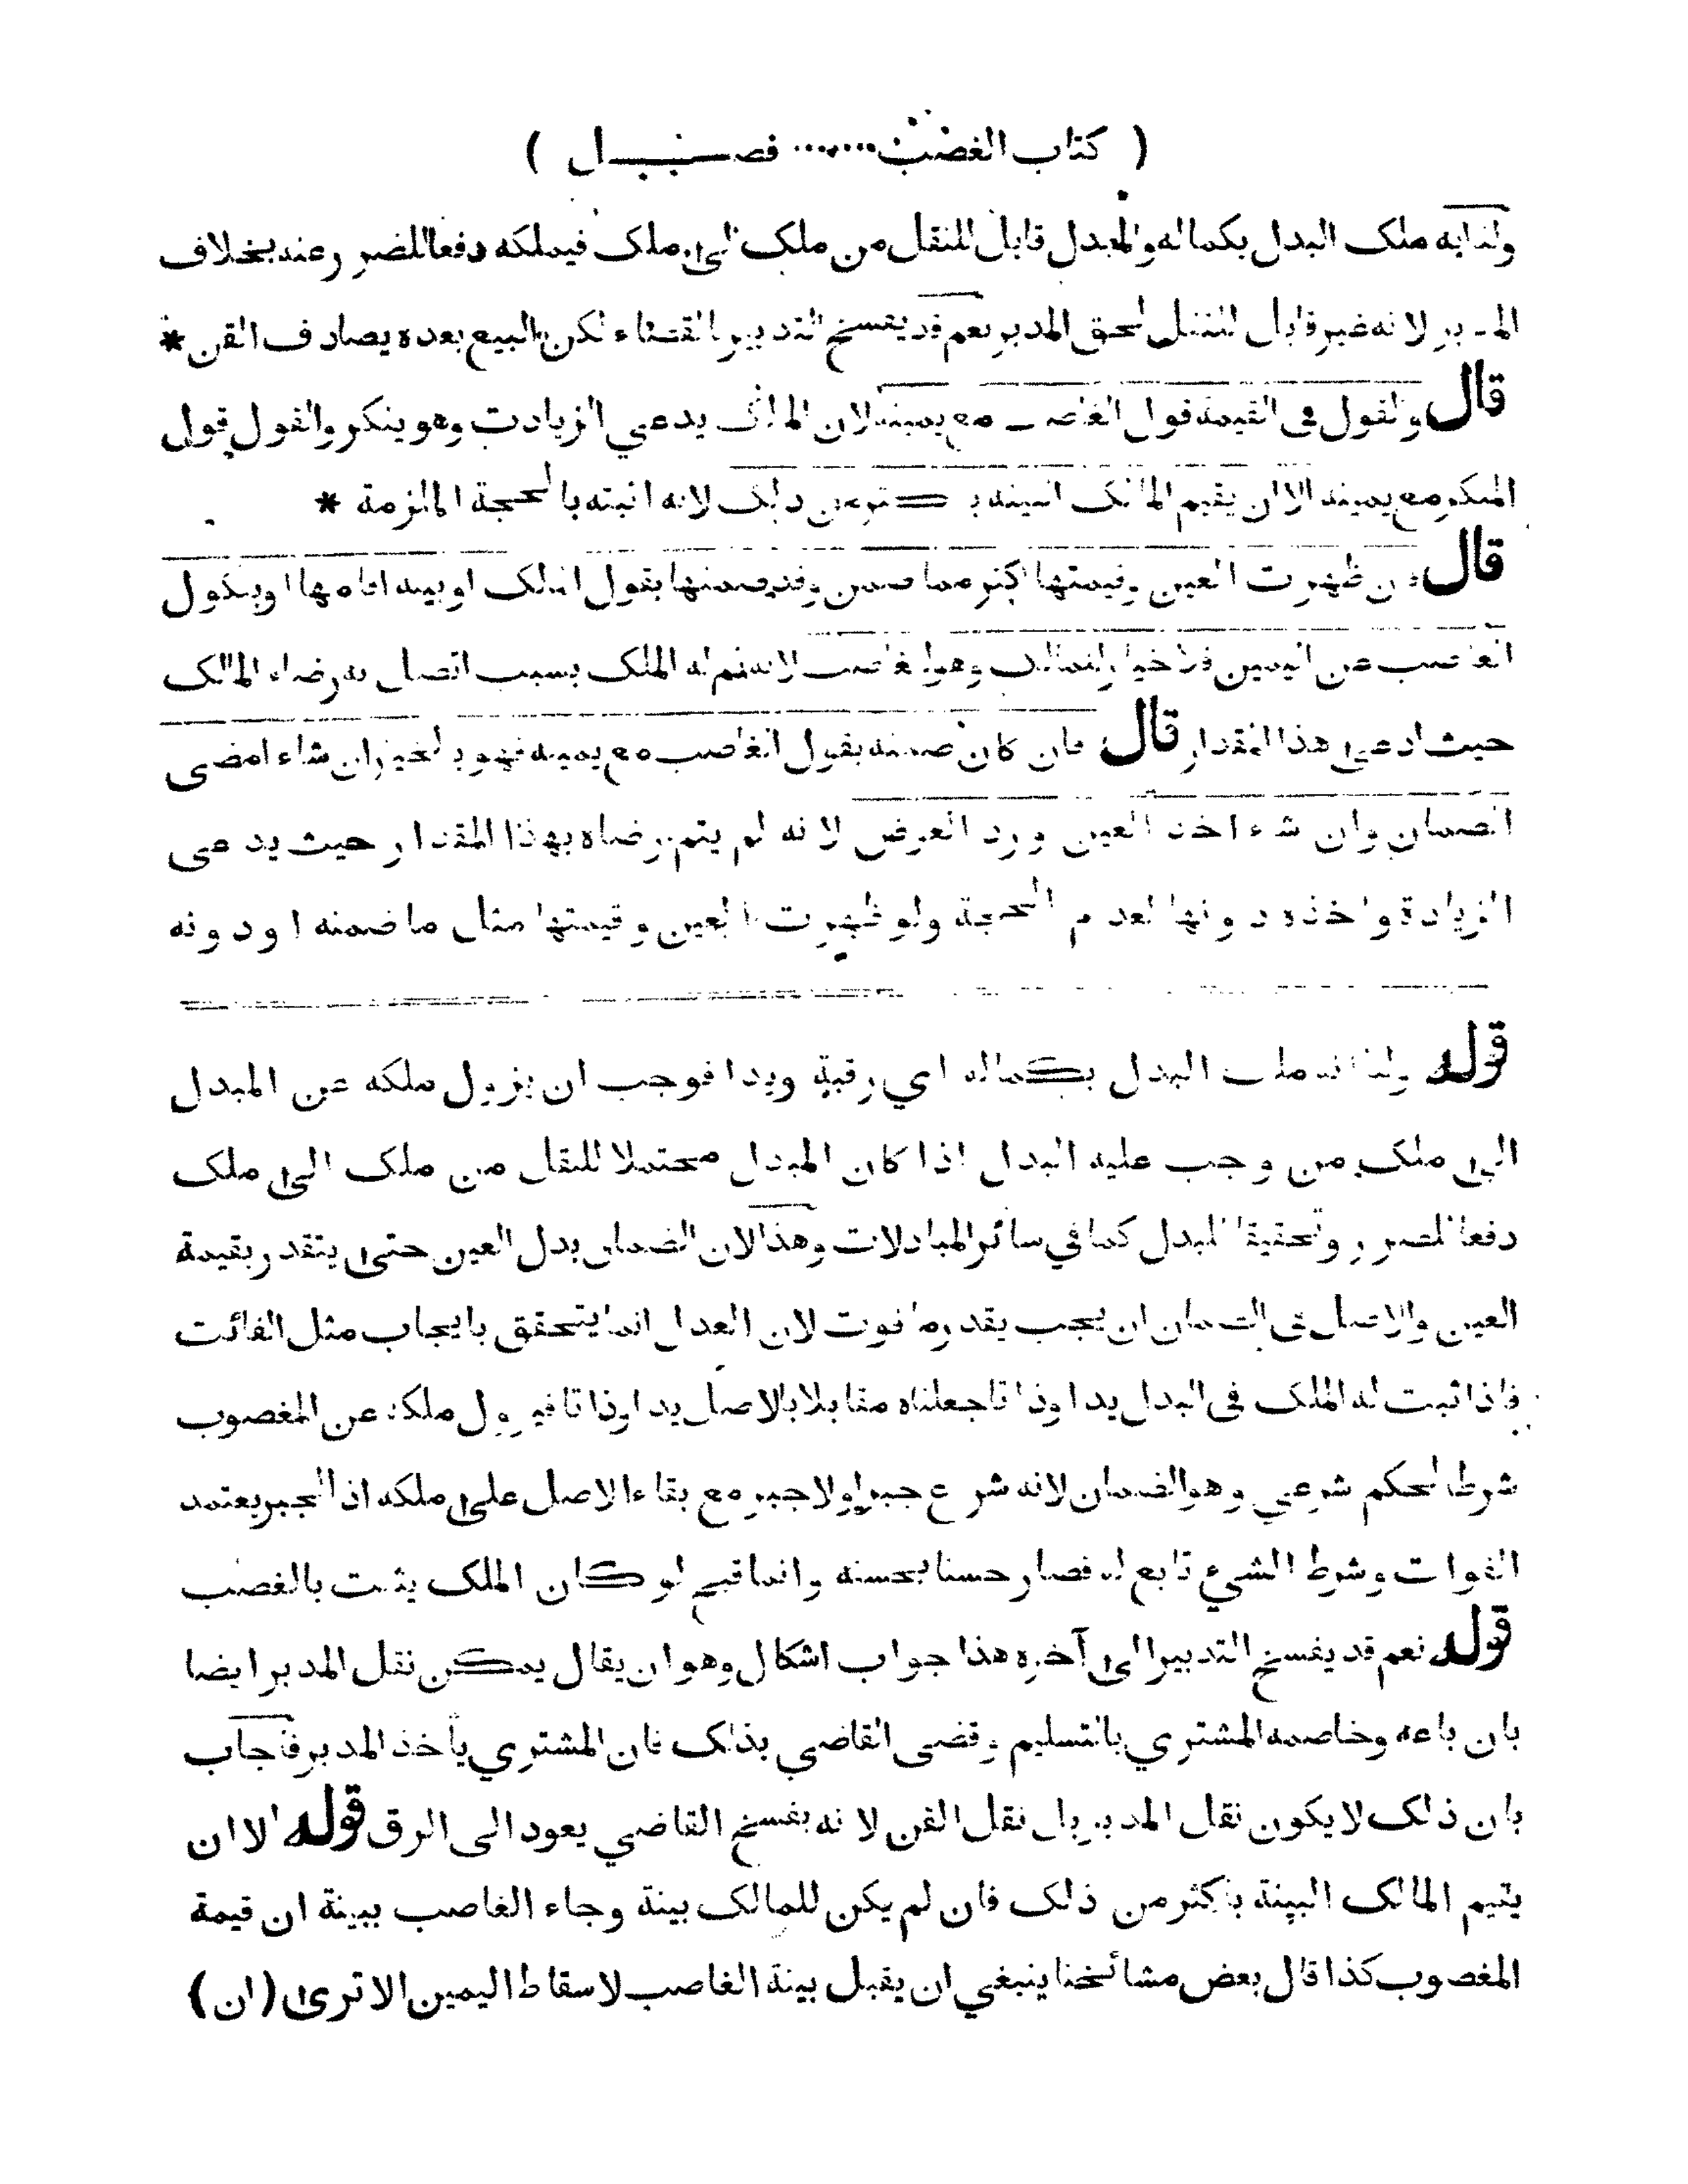 ( كتاب الغصب ...... فصــــل )
ولنا انه ملك البدل بكماله والمبدل قابل للنقل من ملك الى ملك فيملكه دفعا للضرر عنه بخلاف
المدبر لانه غير قابل للنقل لحق المدبر نعم قد يفسخ التدبير بالقضاء لكن البيع بعده يصادف القن *
قال والقول في القيمة قول الغاصب مع يمينه لان المالك يدعي الزيادة وهو ينكر والقول قول
المنكر مع يمينه الا ان يقيم المالك البينة باكثر من ذلك لانه اثبته بالحجة الملزمة *
قال فان ظهرت العين وقيمتها اكثر مما ضمن وقد ضمنها بقول المالك او ببينة اقامها او بنكول
الغاصب عن اليمين فلا خيار للمالك وهو للغاصب لانه تم له الملك بسبب اتصل به رضاء المالك
حيث ادعى هذا المقدار قال فان كان ضمنه بقول الغاصب مع يمينه فهو بالخيار ان شاء امضى
الضمان وان شاء اخذ العين ورد العوض لانه لم يتم رضاه بهذا المقدار حيث يدعى
الزيادة واخذه دونها لعدم الحجة ولو ظهرت العين وقيمتها مثل ما ضمنه او دونه
قوله ولنا انه ملك البدل بكماله اي رقبة ويدا فوجب ان يزول ملكه عن المبدل
الى ملك من وجب عليه البدل اذا كان المبدل محتملا للنقل من ملك الى ملك
دفعا للضرر وتحقيقا للبدل كما في سائر المبادلات وهذا لان الضمان بدل العين حتى يتقدر بقيمة
العين والاصل في الضمان ان يجب بقدر ما فوت لان العدل انما يتحقق بايجاب مثل الفائت
فاذا ثبت له الملك في البدل يدا وذاتا جعلناه مقابلا بالاصل يدا وذاتا فيزول ملكه عن المغصوب
شرطا لحكم شرعي وهو الضمان لانه شرع جبرا ولا جبر مع بقاء الاصل على ملكه اذ الجبر يعتمد
الفوات وشرط الشيء تابع له فصار حسنا بحسنه وانما قبح لو كان الملك يثبت بالغصب
قوله نعم قد يفسخ التدبير الى آخره هذا جواب اشكال وهو ان يقال يمكن نقل المدبر ايضا
بان باعه وخاصمه المشتري بالتسليم وقضى القاضي بذلك فان المشتري يأخذ المدبر فاجاب
بان ذلك لا يكون نقل المدبر بل نقل القن لانه بفسخ القاضي يعود الى الرق قوله الا ان
يقيم المالك البينة باكثر من ذلك فان لم يكن للمالك بينة وجاء الغاصب ببينة ان قيمة
المغصوب كذا قال بعض مشائخنا ينبغي ان يقبل بينة الغاصب لاسقاط اليمين الا ترى (ان)